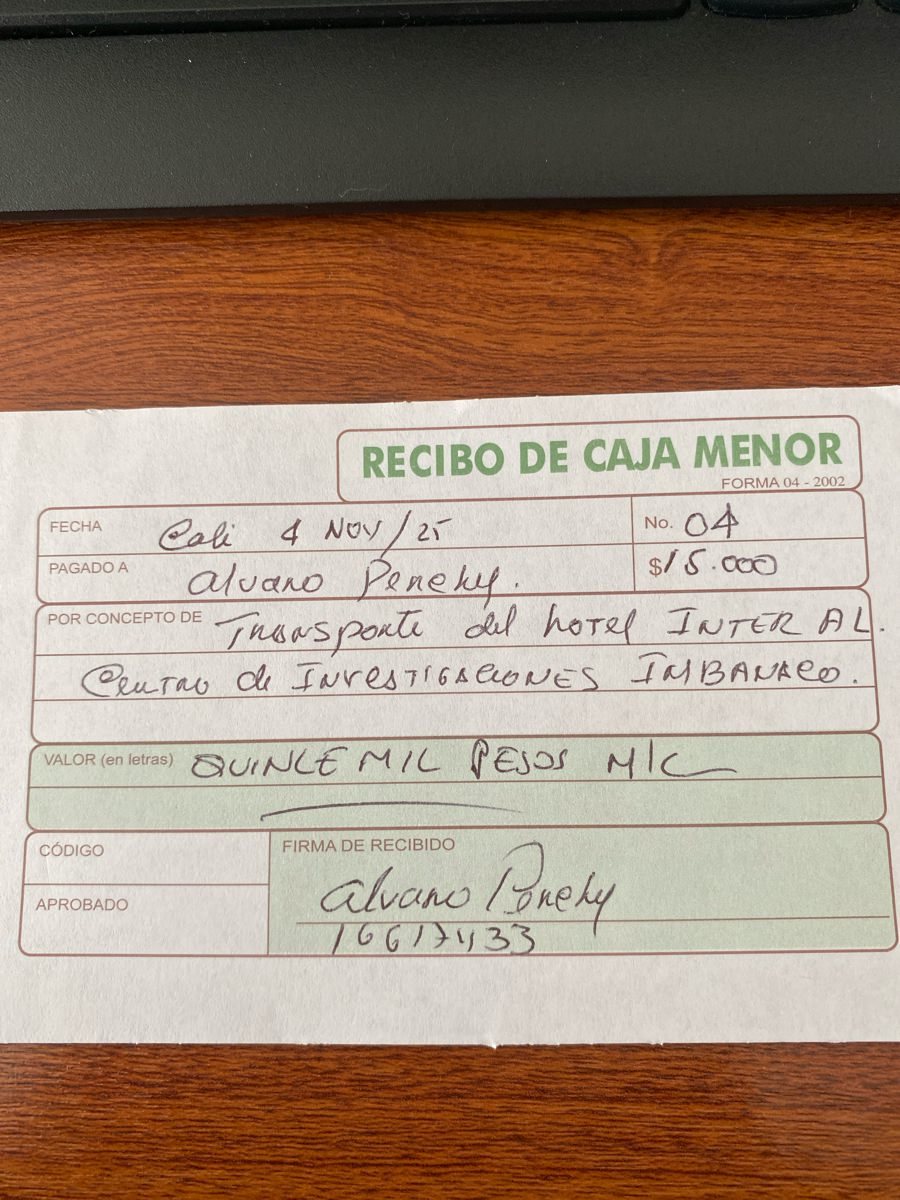 RECIBO DE CAJA MENOR
FORMA 04 - 2002
FECHA Cali 4 NOV/25 No. 04
PAGADO A Alvaro Penehy. $15.000
POR CONCEPTO DE Transporte del hotel INTER AL.
Centro de INVESTIGACIONES IMBANACO.
VALOR (en letras) QUINCE MIL PESOS M/C
CÓDIGO
FIRMA DE RECIBIDO
Alvaro Penehy
APROBADO